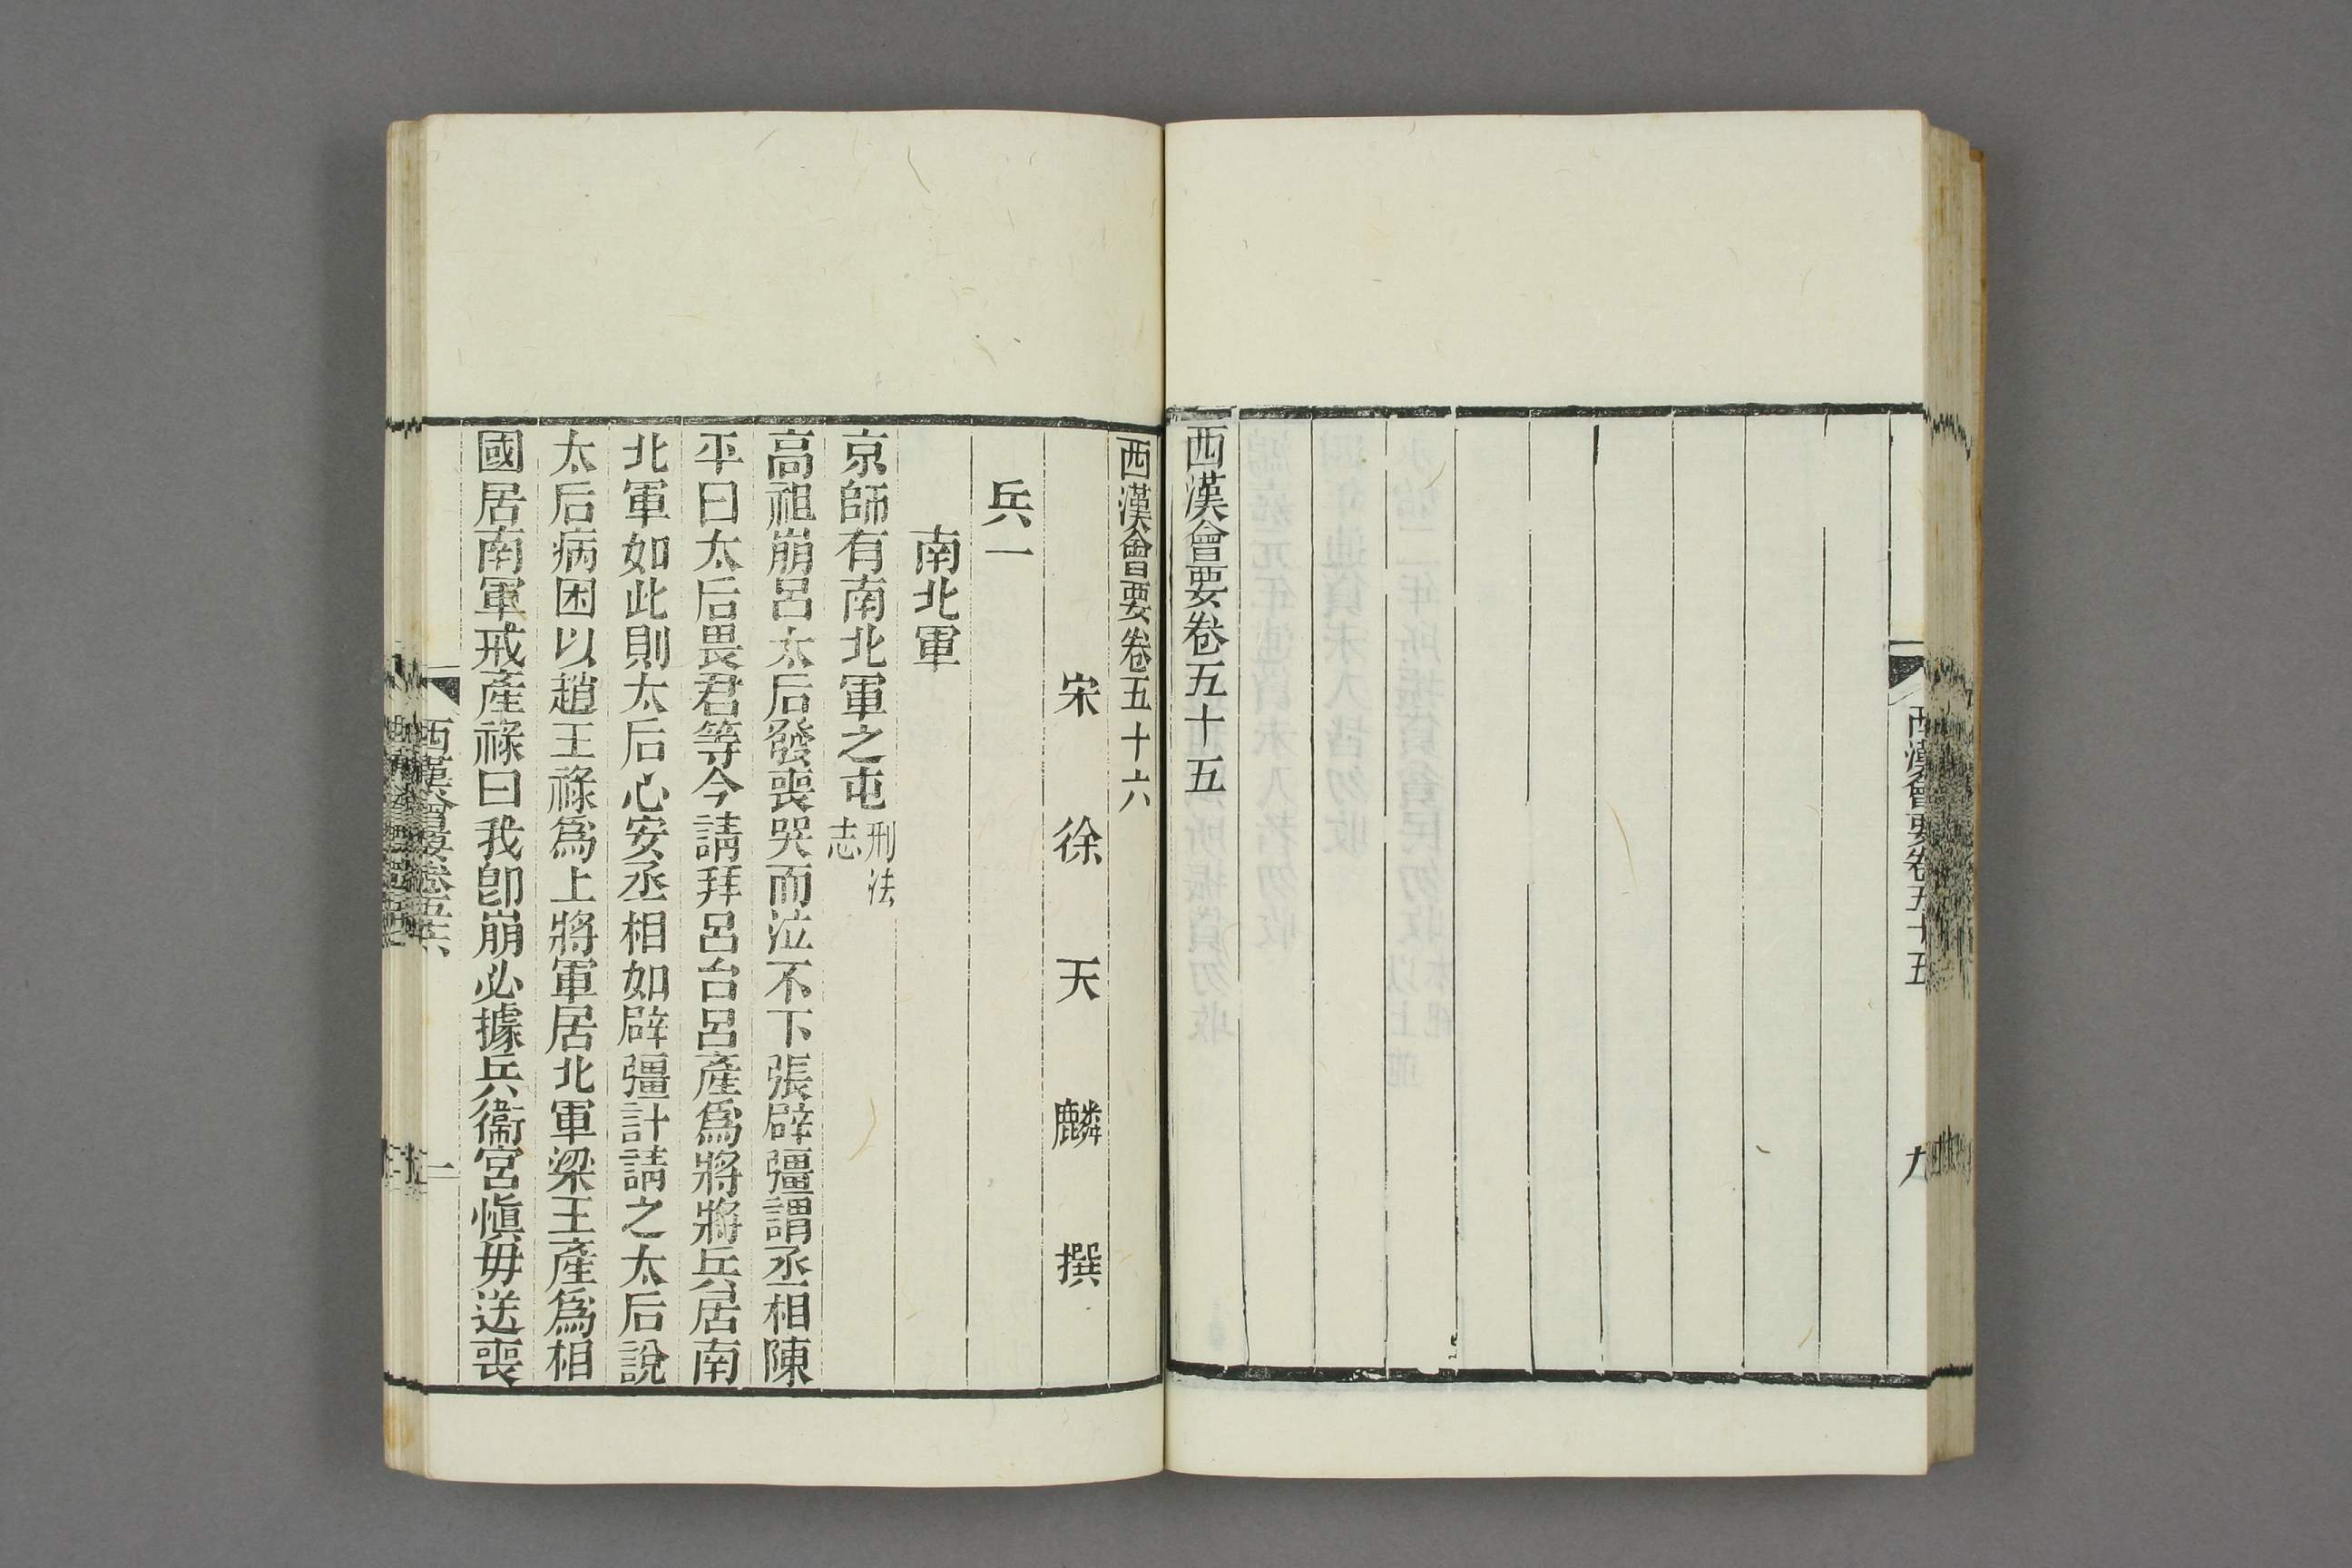 西漢會要卷五十五
九
西漢會要卷五十五
西漢會要卷五十六
宋徐天麟撰
兵一
南北軍
京師有南北軍之屯刑法志
高祖崩呂太后發喪哭而泣不下張辟彊謂丞相陳
平曰太后畏君等今請拜呂台呂產爲將將兵居南
北軍如此則太后心安丞相如辟彊計請之太后說
太后病困以趙王祿爲上將軍居北軍梁王產爲相
國居南軍戒產祿曰我卽崩必據兵衞宮愼毋送喪
西漢會要卷五十六
一